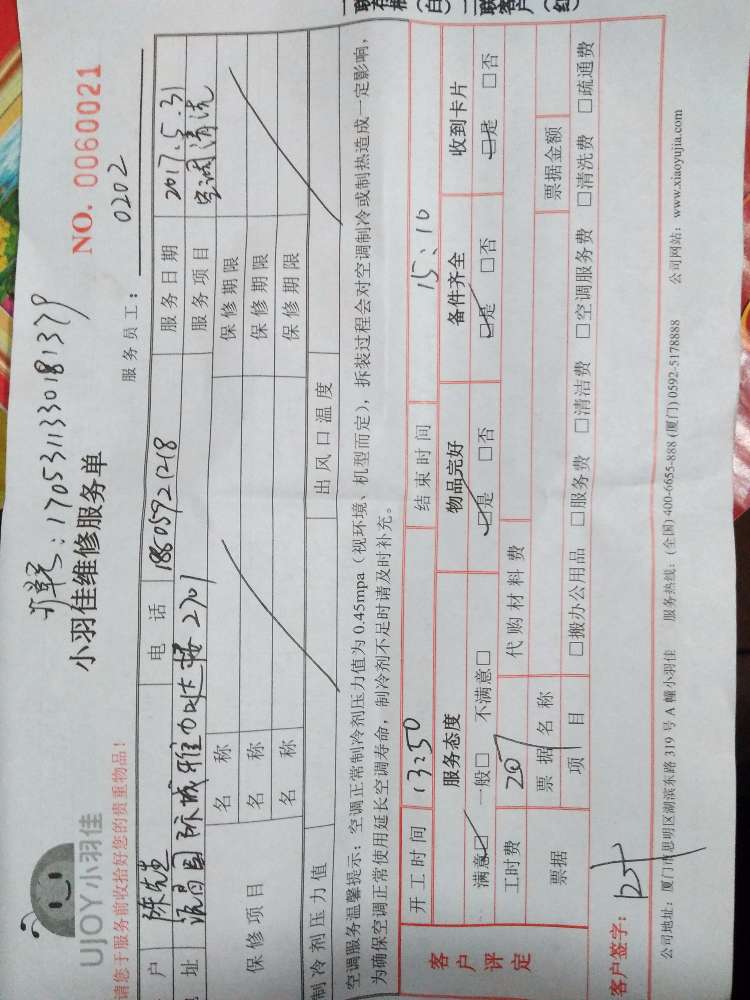 二联客户（红）
NO. 0060021
:170531133018 1379
小羽佳维修服务单
UJOY小羽佳
请您于服务前收拾好您的贵重物品！
服务员工： 0202
户 陈先生 电话 18605921218 服务日期 2017.5.31
址 国际城雅 2701 服务项目 空调清洗
保修项目 名称 保修期限
名称 保修期限
名称 保修期限
制冷剂压力值 出风口温度
空调服务温馨提示：空调正常制冷剂压力值为0.45mpa（视环境、机型而定），拆装过程会对空调制冷或制热造成一定影响，
为确保空调正常使用延长空调寿命，制冷剂不足时请及时补充。
客户评定 开工时间 13:50 结束时间 15:10
服务态度 物品完好 备件齐全 收到卡片
满意□ 一般□ 不满意□ □是 □否 □是 □否 □是 □否
工时费 207 代购材料费
票据 票据名称 票据金额
项目 □搬办公用品 □服务费 □清洁费 □空调服务费 □清洗费 □疏通费
客户签字：
公司地址：厦门市思明区湖滨东路319号A幢小羽佳 服务热线：(全国)400-6655-888 (厦门)0592-5178888 公司网站：www.xiaoyujia.com